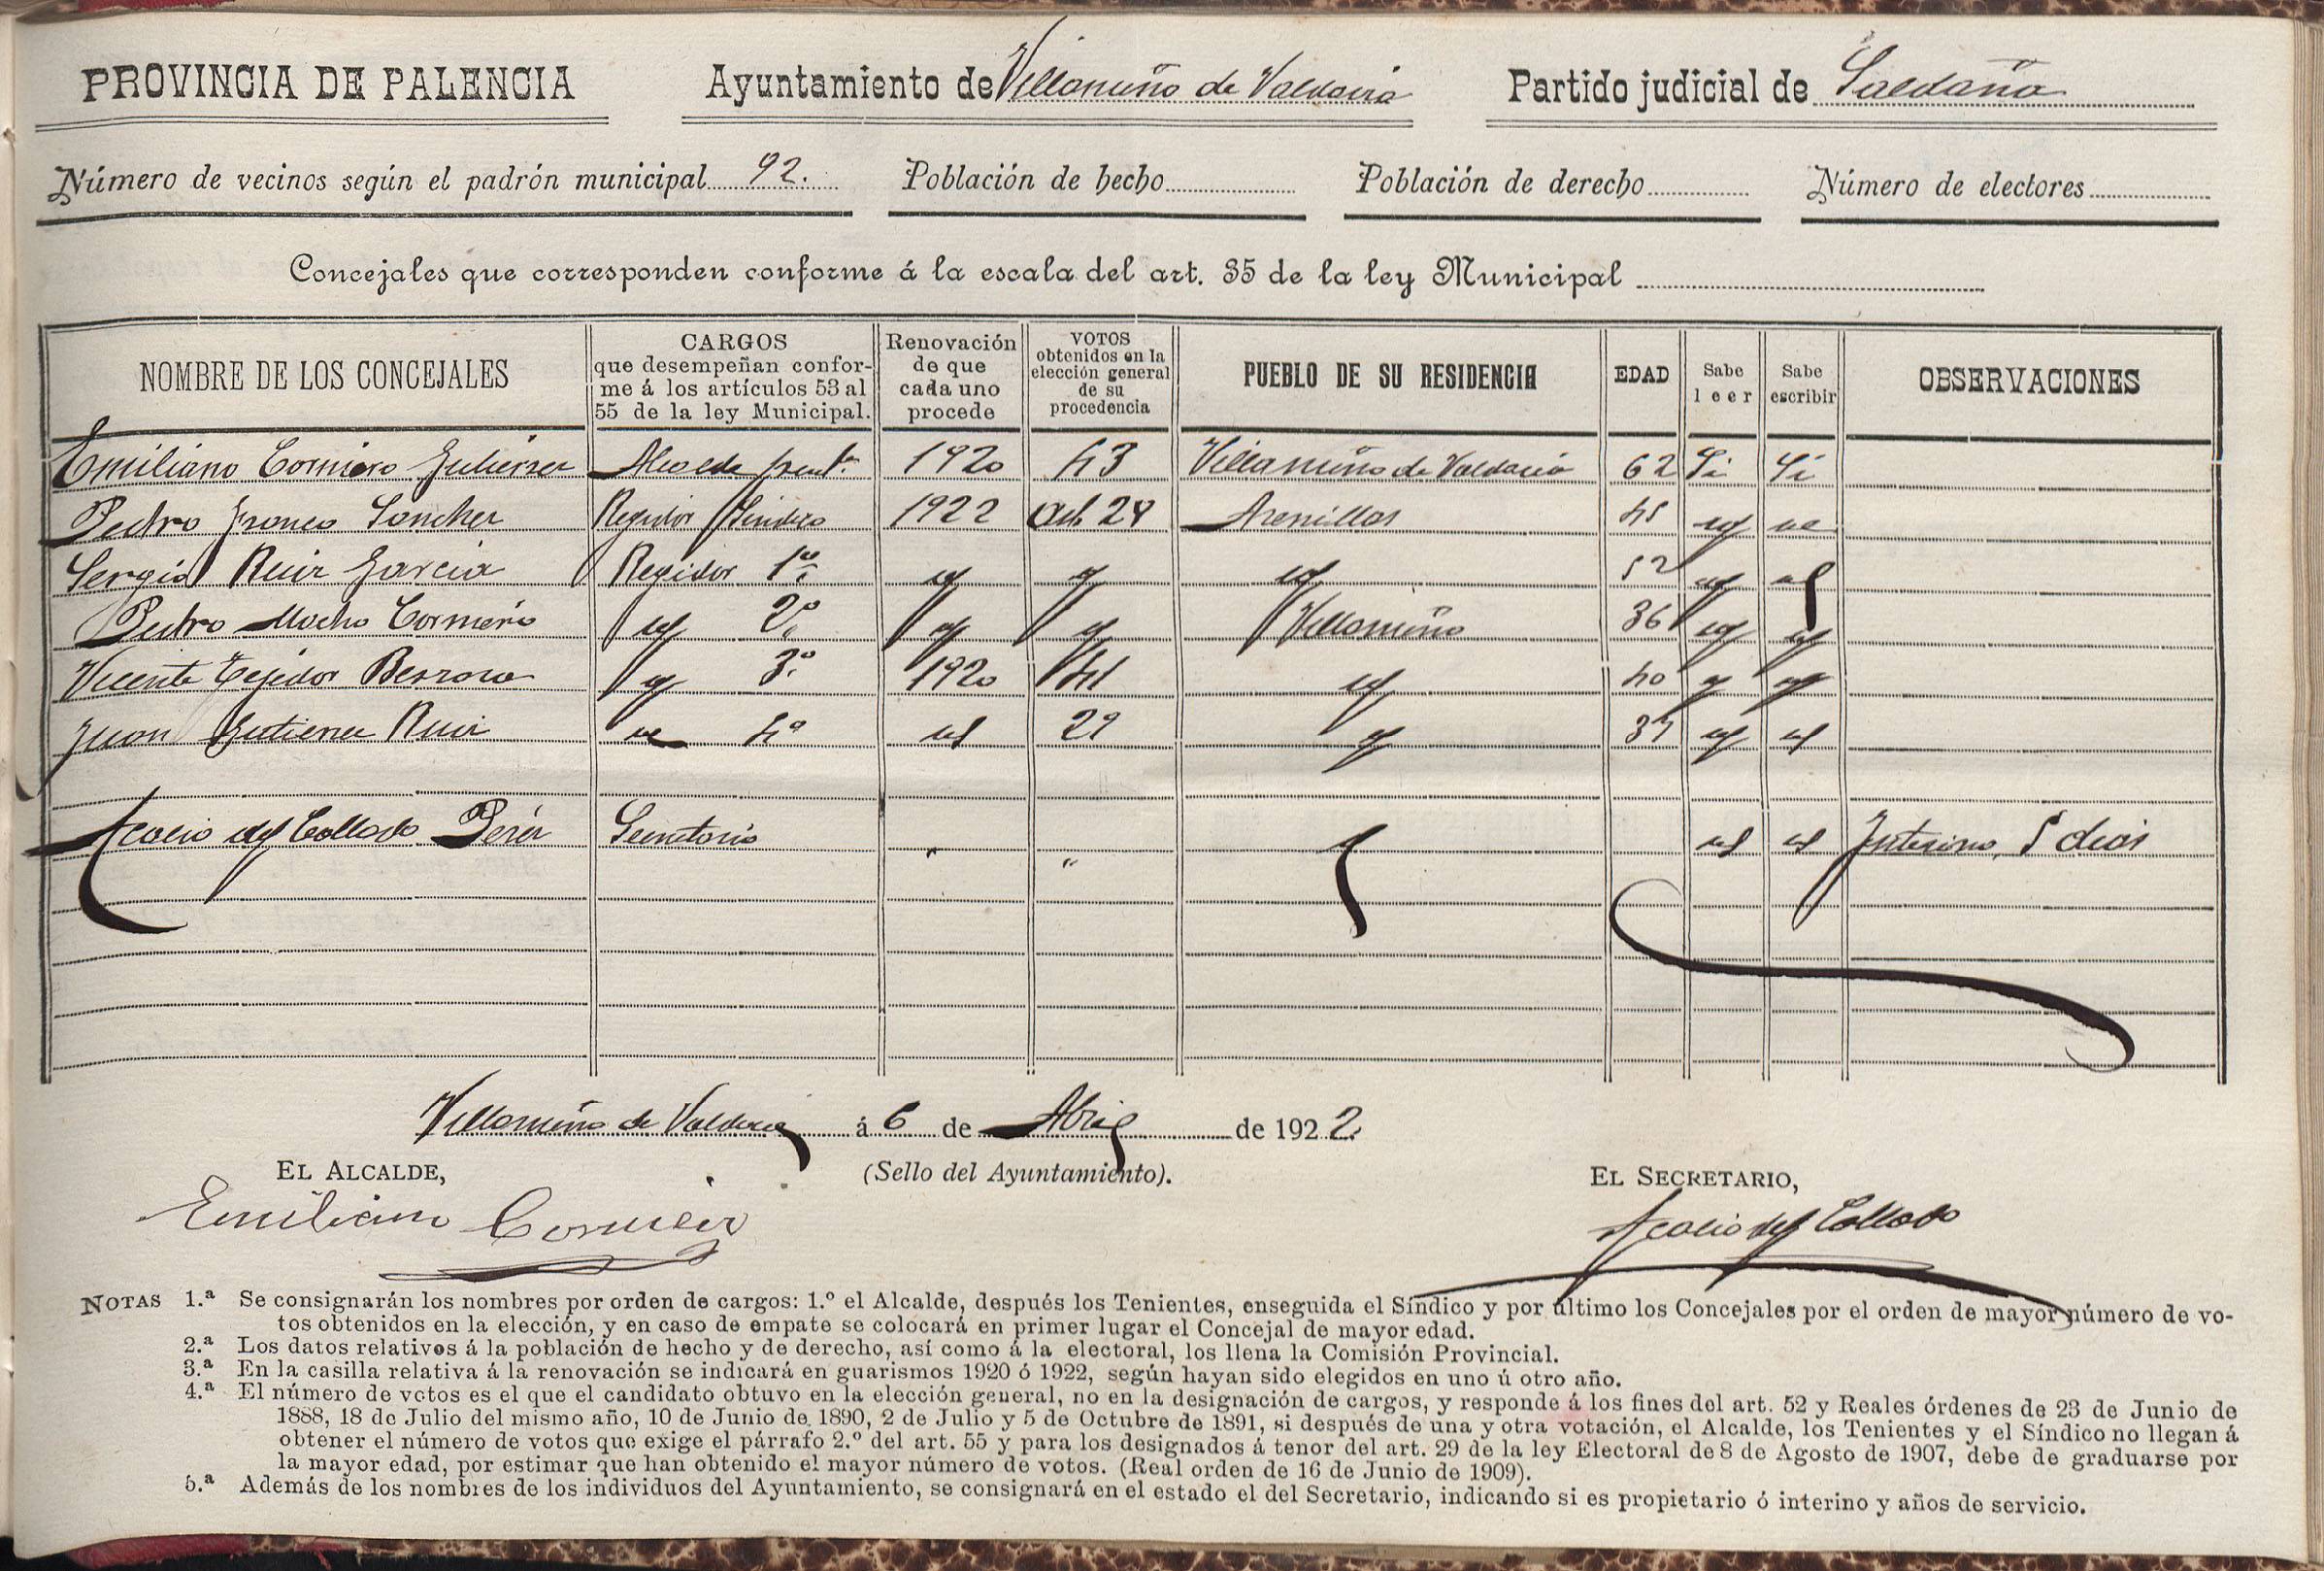 PROVINCIA DE PALENCIA Ayuntamiento de Villanuño de Valdavia Partido judicial de Saldaña
Número de vecinos según el padrón municipal 92. Población de hecho Población de derecho Número de electores
Concejales que corresponden conforme á la escala del art. 35 de la ley Municipal
NOMBRE DE LOS CONCEJALES
CARGOS
que desempeñan confor-
me á los artículos 53 al
55 de la ley Municipal.
Renovación
de que
cada uno
procede
VOTOS
obtenidos en la
elección general
de su
procedencia
PUEBLO DE SU RESIDENCIA
EDAD
Sabe
leer
Sabe
escribir
OBSERVACIONES
Emiliano Corniero Gutierrez Alcalde 1920 43 Villanuño de Valdavia 62 Si Si
Pedro Franco Sanchez Regidor Sindico 1922 Art 29 Arenillas 45 id id
Sergio Ruiz Garcia Regidor 1º id id id 52 id id
Pedro Macho Corniero id 2º id id Villanuño 36 id id
Vicente Tejedor Berzosa id 3º 1920 41 id 40 id id
Juan Gutierrez Ruiz id 4º id 29 id 37 id id
Acacio del Collado Perez Secretario " " id id id Interino, 5 dias
Villanuño de Valdavia á 6 de Abril de 1922.
EL ALCALDE, (Sello del Ayuntamiento). EL SECRETARIO,
Emiliano Corniero Acacio del Collado
NOTAS 1.ª Se consignarán los nombres por orden de cargos: 1.º el Alcalde, después los Tenientes, enseguida el Síndico y por último los Concejales por el orden de mayor número de vo-
tos obtenidos en la elección, y en caso de empate se colocará en primer lugar el Concejal de mayor edad.
2.ª Los datos relativos á la población de hecho y de derecho, así como á la electoral, los llena la Comisión Provincial.
3.ª En la casilla relativa á la renovación se indicará en guarismos 1920 ó 1922, según hayan sido elegidos en uno ú otro año.
4.ª El número de votos es el que el candidato obtuvo en la elección general, no en la designación de cargos, y responde á los fines del art. 52 y Reales órdenes de 23 de Junio de
1888, 18 de Julio del mismo año, 10 de Junio de 1890, 2 de Julio y 5 de Octubre de 1891, si después de una y otra votación, el Alcalde, los Tenientes y el Síndico no llegan á
obtener el número de votos que exige el párrafo 2.º del art. 55 y para los designados á tenor del art. 29 de la ley Electoral de 8 de Agosto de 1907, debe de graduarse por
la mayor edad, por estimar que han obtenido el mayor número de votos. (Real orden de 16 de Junio de 1909).
5.ª Además de los nombres de los individuos del Ayuntamiento, se consignará en el estado el del Secretario, indicando si es propietario ó interino y años de servicio.